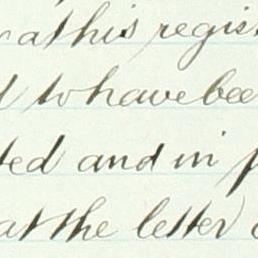 at his regis
to have bee
ted and in
at the letter